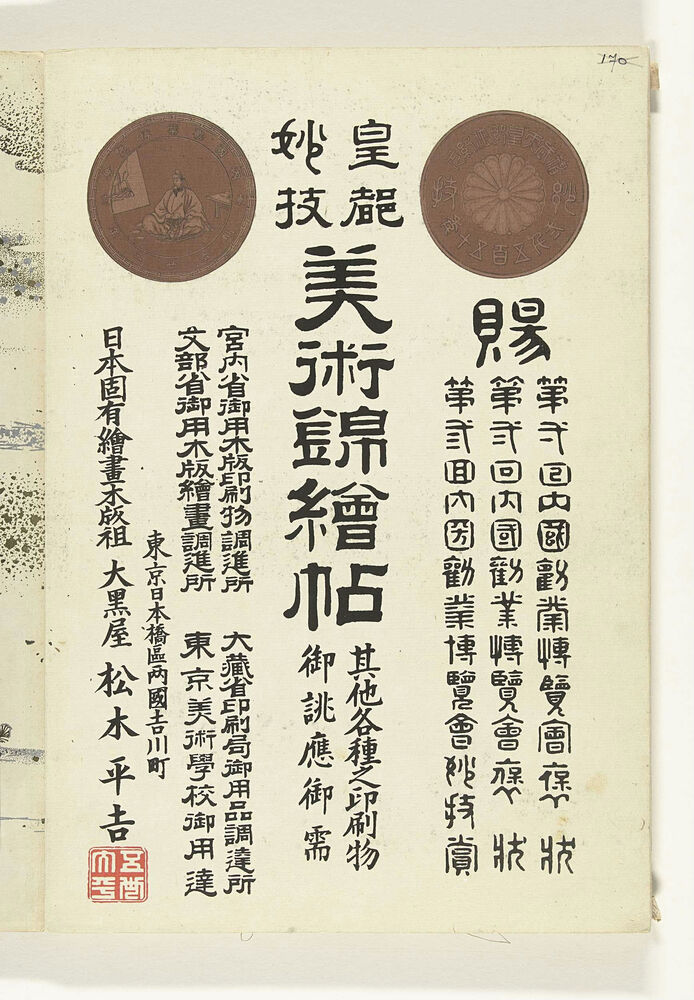 170
賜
第弐回内國勧業博覽會褒状
第弐回内國勧業博覽會褒状
第弐回内国勧業博覽會妙技賞
皇都
妙技
美術錦繪帖
其他各種之印刷物
御誂應御需
宮内省御用木版印刷物調進所
大藏省印刷局御用品調達所
文部省御用木版繪畫調進所
東京美術學校御用達
東京日本橋區两國吉川町
日本固有繪畫木版祖 大黒屋 松木平吉
妙技